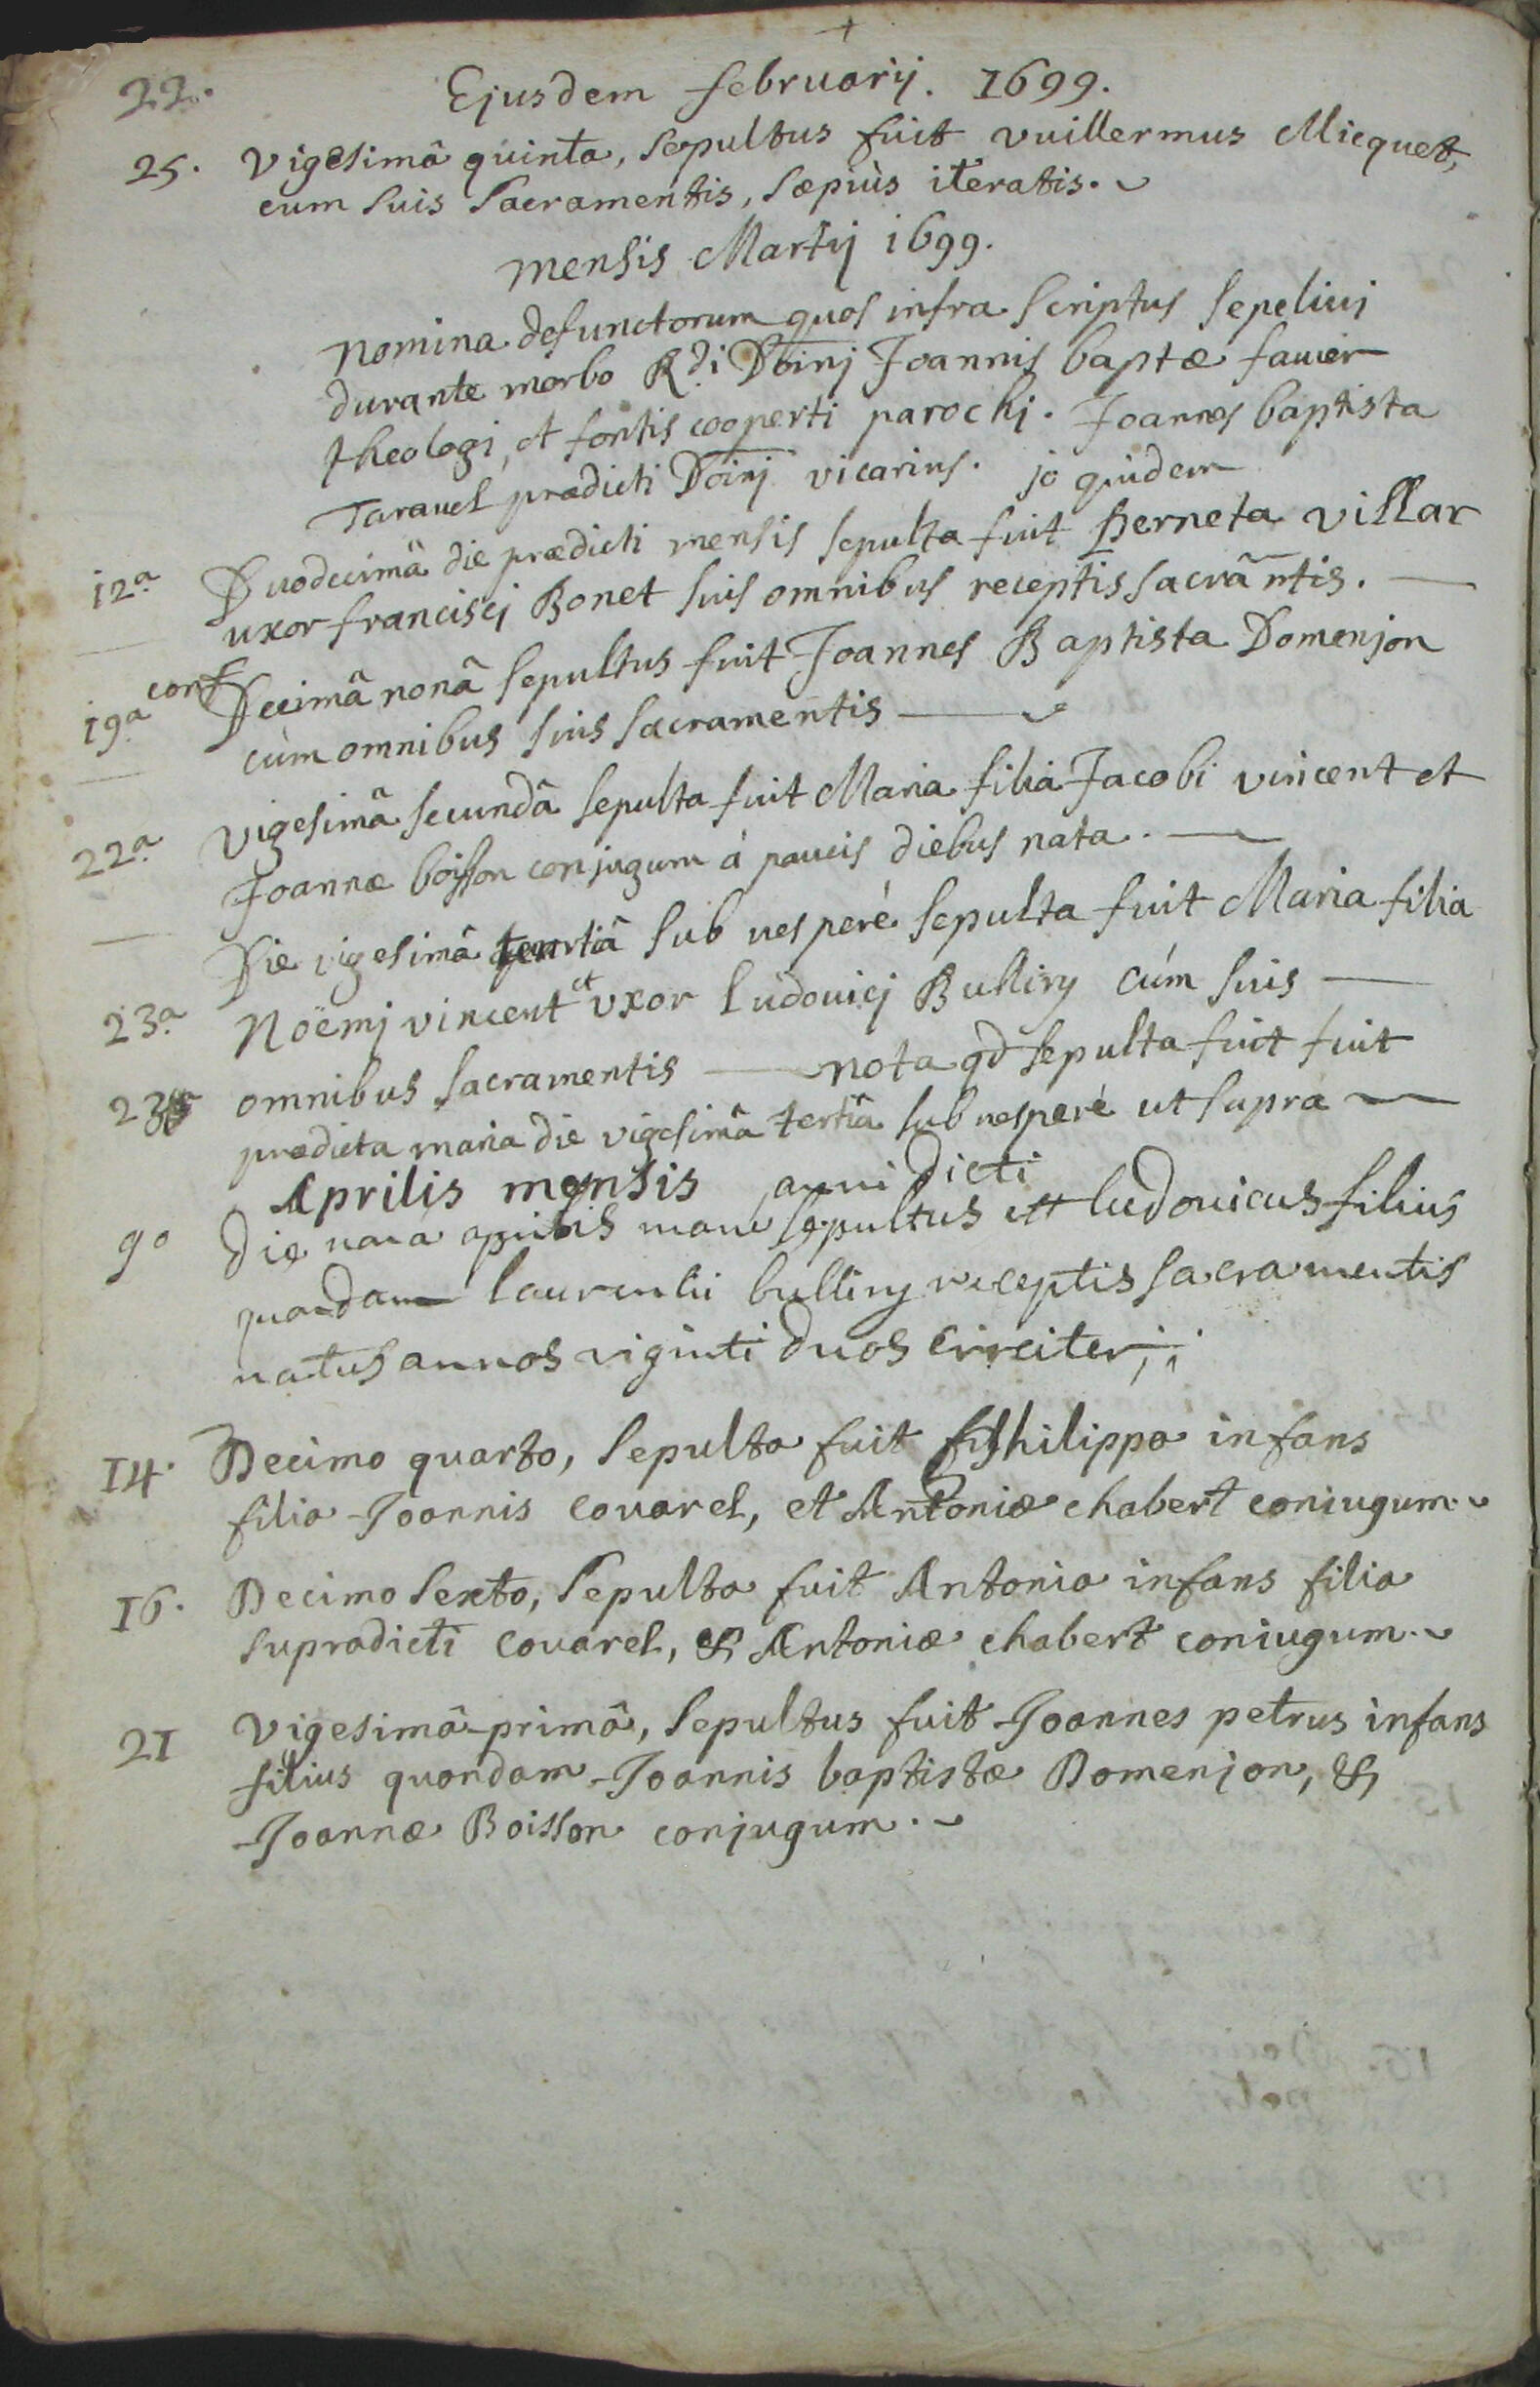 22.
Ejusdem februarij. 1699.
25. vigesimâ quinta, sepultus fuit vuillermus Micquet,
cum suis Sacramentis, sæpiùs iteratis.
mensis Martij 1699.
nomina defunctorum quos infra scriptus sepelivj
durante morbo Rdi Dōinj Joannis baptæ favier
theologi, et fontis cooperti parochj. Joannes baptista
Taravel prædicti Dōinj vicarius. jo quidem
12a Duodecimâ die prædicti mensis sepulta fuit Perneta villar
uxor franciscj Bonet suis omnibus receptis sacrāntis.
19a conf Decimâ nonâ sepultus fuit Joannes Baptista Domenjon
cùm omnibus suis sacramentis
22a vigesimâ secundâ sepulta fuit Maria filia Jacobi vincent et
Joannæ boisson conjugum á paucis diebus nata.
23a Die vigesimâ tertiâ sub vesperé sepulta fuit Maria filia
Nöemj vincent et vxor ludovicj Bulliny cúm suis
23a omnibus sacramentis nota qd sepulta fuit fuit
prædicta maria die vigesimâ tertiâ sub vesperé ut supra
Aprilis mensis anni dicti
9o die nona aprilis mane sepultus est ludovicus filius
quondam laurentii bulliny receptis sacramentis
natus annos viginti duos circiter
14. Decimo quarto, sepulta fuit philippa infans
filia Joannis covarel, et Antoniæ chabert coniugum.
16. Decimo sexto, sepulta fuit Antonia infans filia
supradicti covarel, & Antoniæ chabert coniugum.
21 vigesimâ primâ, sepultus fuit Joannes petrus infans
filius quondam Joannis baptistæ Domenjon, &
Joannæ Boisson conjugum.